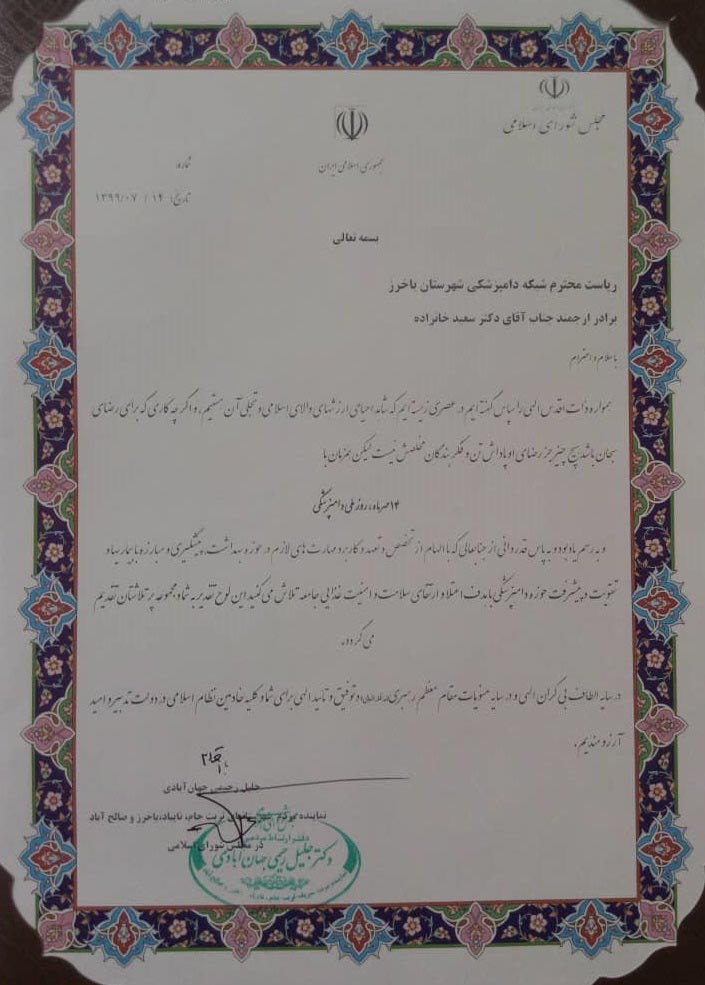 مجلس شورای اسلامی
جمهوری اسلامی ایران
شماره
تاریخ: ۱۴ / ۱۳۹۹/۰۷
بسمه تعالی
ریاست محترم شبکه دامپزشکی شهرستان باخرز
برادر ارجمند جناب آقای دکتر سعید خانزاده
با سلام و احترام
همواره ذات اقدس الهی را سپاس گفته ایم در عصری زیسته ایم که شاهد احیای ارزشهای والای اسلامی و تجلی آن هستیم، و اگر چه کاری که برای رضای
سبحان باشد هیچ چیز جز رضای او پاداش تن و فکر بندگان مخلصش نیست لیکن همزمان با
۱۴ مهرماه، روز ملی دامپزشکی
و به رسم یادبود و به پاس قدردانی از جنابعالی که با الهام از تخصص و تعهد و کاربرد مهارت های لازم در حوزه بهداشت، پیشگیری و مبارزه با بیماریها و
تقویت و پیشرفت حوزه دامپزشکی با هدف اعتلا و ارتقای سلامت و امنیت غذایی جامعه تلاش می کنید این لوح تقدیر به شما و مجموعه پر تلاشتان تقدیم
می گردد.
در سایه الطاف بی کران الهی و در سایه منویات مقام معظم رهبری (مد ظله العالی) توفیق و تائید الهی برای شما و کلیه خادمین نظام اسلامی در دولت تدبیر و امید
آرزومندیم.
با احترام
جلیل رحیمی جهان آبادی
نماینده مردم شهرستانهای تربت جام، تایباد، باخرز و صالح آباد
در مجلس شورای اسلامی
دفتر ارتباط مردمی
دکتر جلیل رحیمی جهان آبادی